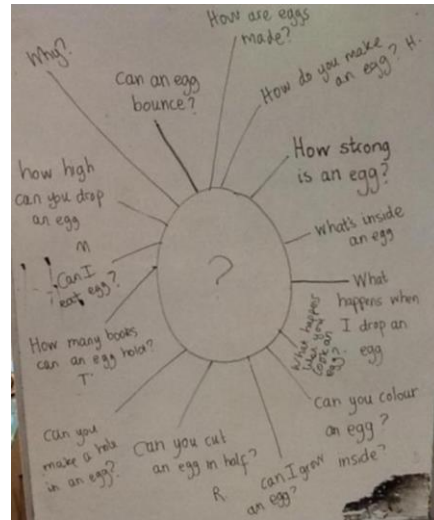 How are eggs
made?
How do you make
an egg? H.
How strong
is an egg?
What's inside
an egg
What
happens when
I drop an
egg
What happens
when you
cook an
egg?
Can you colour
an egg?
inside?
can I grow
an egg?
Can you cut
an egg in half?
R
Can you
make a hole
in an egg?
How many books
can an egg hold?
T
Can I
eat egg?
M
how high
can you drop
an egg
Why?
Can an egg
bounce?
?